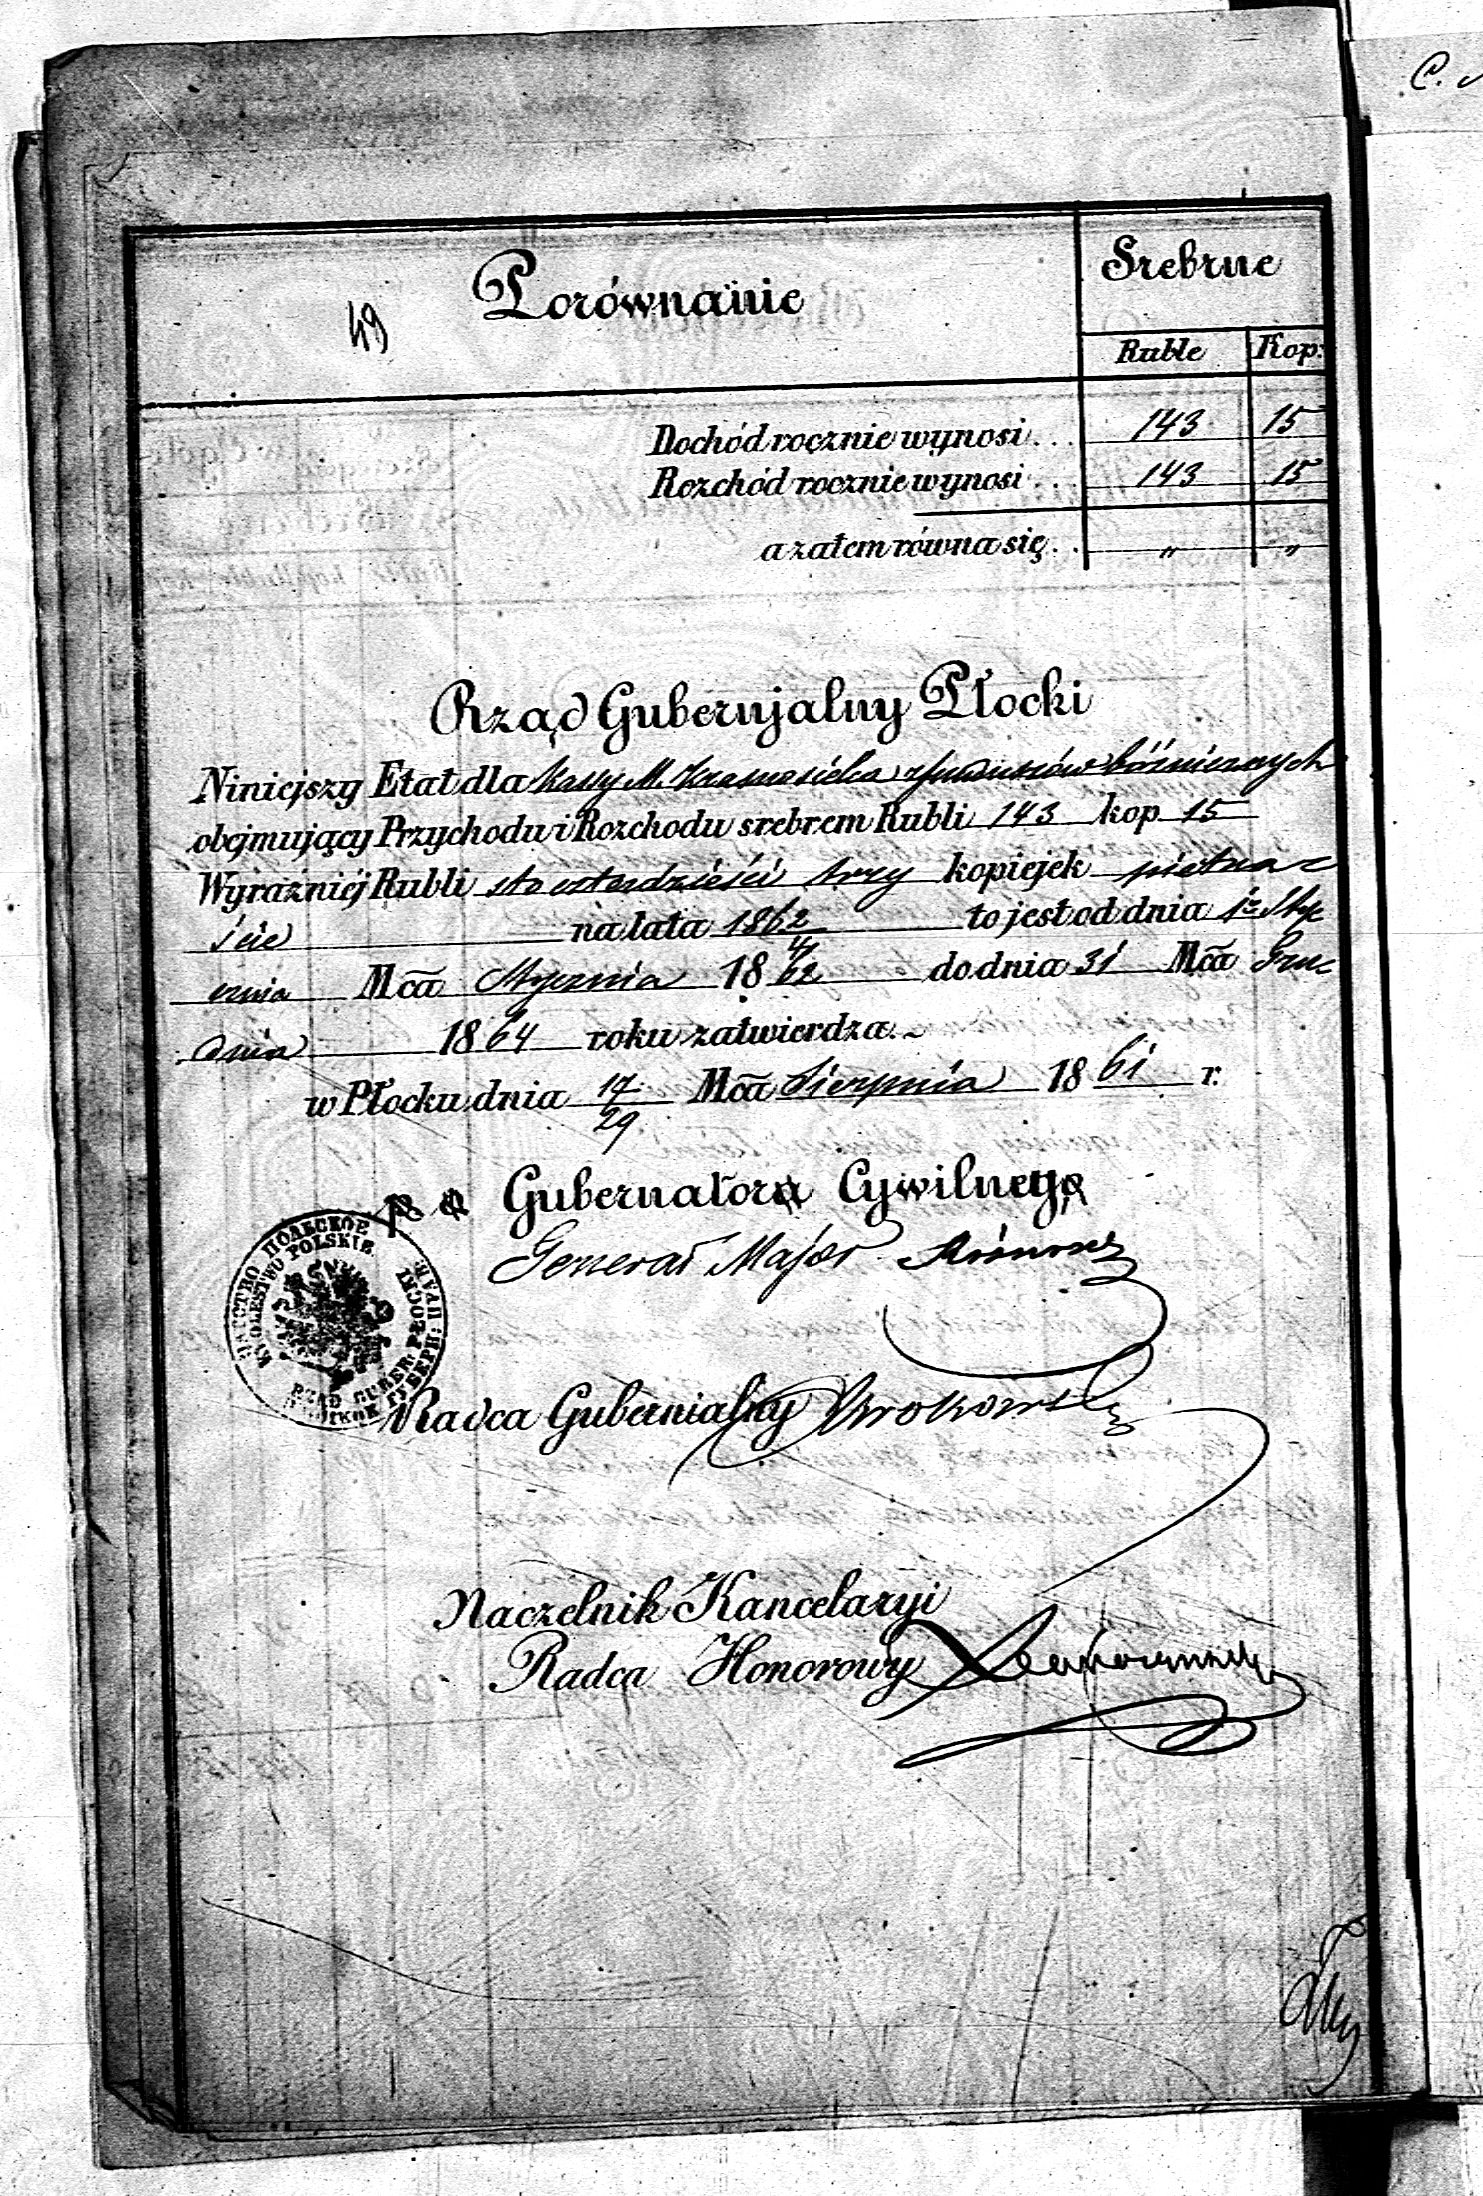 C.
Porównanie
Srebrne
49
Ruble Kop:
Dochód rocznie wynosi . . . 143 15
Rozchód rocznie wynosi . . . 143 15
a zatem równa się . . . " "
Rząd Gubernjalny Płocki
Niniejszy Etat dla Kassy M. Krasnosielca z funduszów bóżniczych
obejmujący Przychodu i Rozchodu srebrem Rubli 143 kop 15
Wyraźniéj Rubli sto czterdzieści trzy kopiejek pietna
ście na lata 1862/4 to jest od dnia 1 Sty
cznia Mca Stycznia 1862 do dnia 31 Mca Gru
dnia 1864 roku zatwierdza.
w Płocku dnia 17/29 Mca Sierpnia 1861 r.
Gubernatora Cywilnego
Generał Major
КРОLESTWO POLSKIE
RZĄD GUBER: PŁOCKI
Radca Gubernialny
Naczelnik Kancelaryi
Radca Honorowy